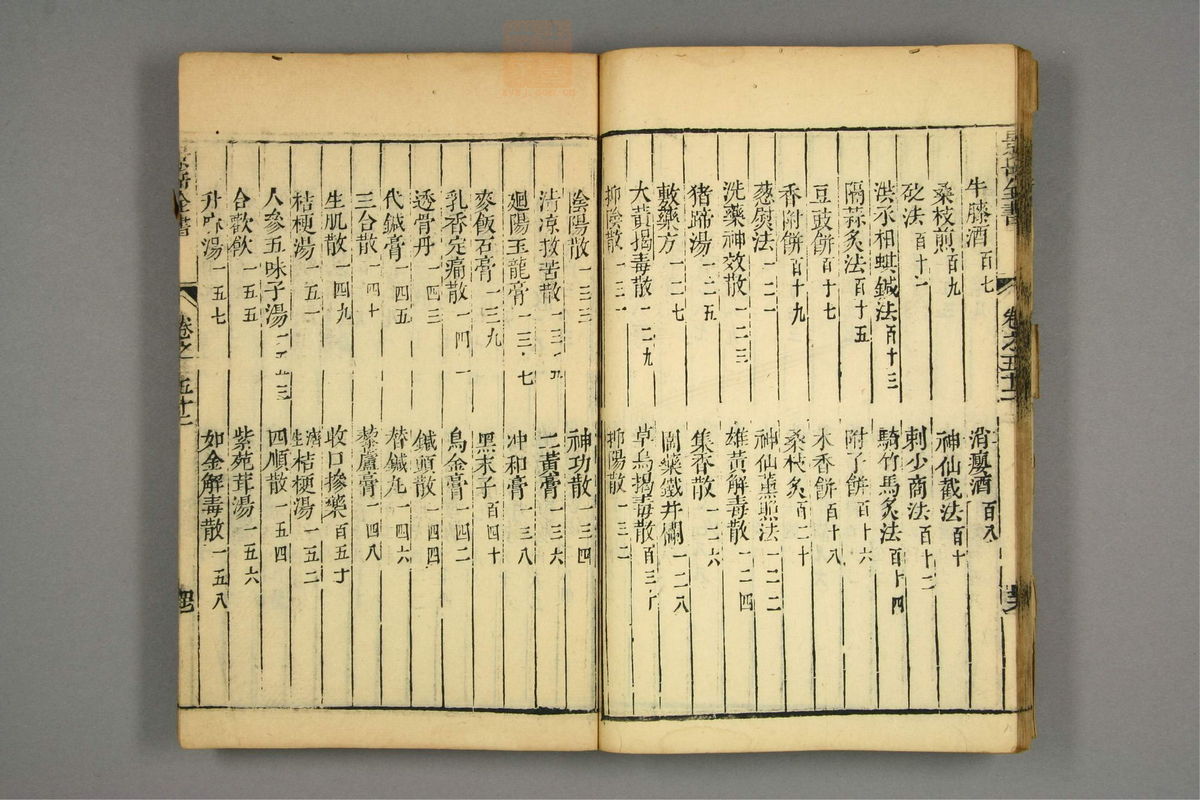 景岳全書 卷之五十一
牛膝酒百七 消癭酒百八
桑枝煎百九 神仙截法百十
砭法百十一 刺少商法百十二
洪丞相蜞鍼法百十三 騎竹馬灸法百十四
隔蒜灸法百十五 附子餅百十六
豆豉餅百十七 木香餅百十八
香附餅百十九 桑枝灸百二十
葱熨法一二一 神仙薰照法一二二
洗藥神效散一二三 雄黃解毒散一二四
猪蹄湯一二五 集香散一二六
敷藥方一二七 圍藥鐵井欄一二八
大黃揭毒散一二九 草烏揭毒散百三十
抑陰散一三一 抑陽散一三二
陰陽散一三三 神功散一三四
清凉救苦散一三五 二黃膏一三六
廻陽玉龍膏一三七 冲和膏一三八
麥飯石膏一三九 黑末子百四十
乳香定痛散一四一 烏金膏一四二
透骨丹一四三 鍼頭散一四四
代鍼膏一四五 替鍼丸一四六
三台散一四七 藜蘆膏一四八
生肌散一四九 收口摻藥百五十
桔梗湯一五一 濟生桔梗湯一五二
人參五味子湯一五三 四順散一五四
合歡飲一五五 紫菀茸湯一五六
升麻湯一五七 如金解毒散一五八
景岳全書 卷之五十一